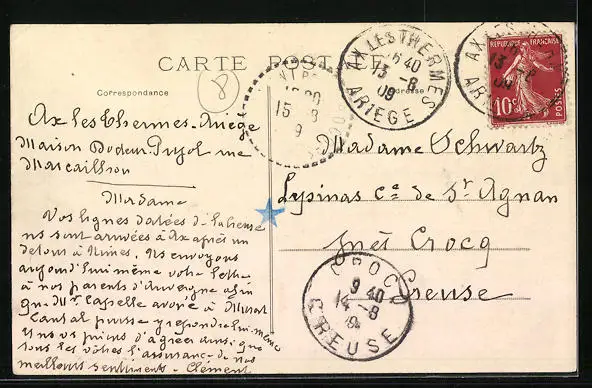 CARTE POSTALE
Correspondance
Adresse
8
AX LES THERMES
6 40
13 - 8
09
ARIEGE
AX LES
13 - 8
09
ARIEGE
REPUBLIQUE FRANÇAISE
10c
POSTES
15 8
9
Ax les Thermes. Ariége
Maison Docteur Pujol rue
Marcaillou
Madame
Vos lignes datées de
ns sont arrivées à Ax après un
détour à Nimes. Ns envoyons
aujourd'hui même votre lettre
à nos parents d'Auvergne afin
que Mr Capelle avoué à Murat
Cantal puisse y répondre lui-même
Et ns vs prions d'agréer ainsi que
tous les vôtres l'assurance de nos
meilleurs sentiments - Clément
Madame Schwartz
Lepinas Ce de St Agnan
près Crocq
Creuse
CROCQ
9 40
14 - 8
CREUSE